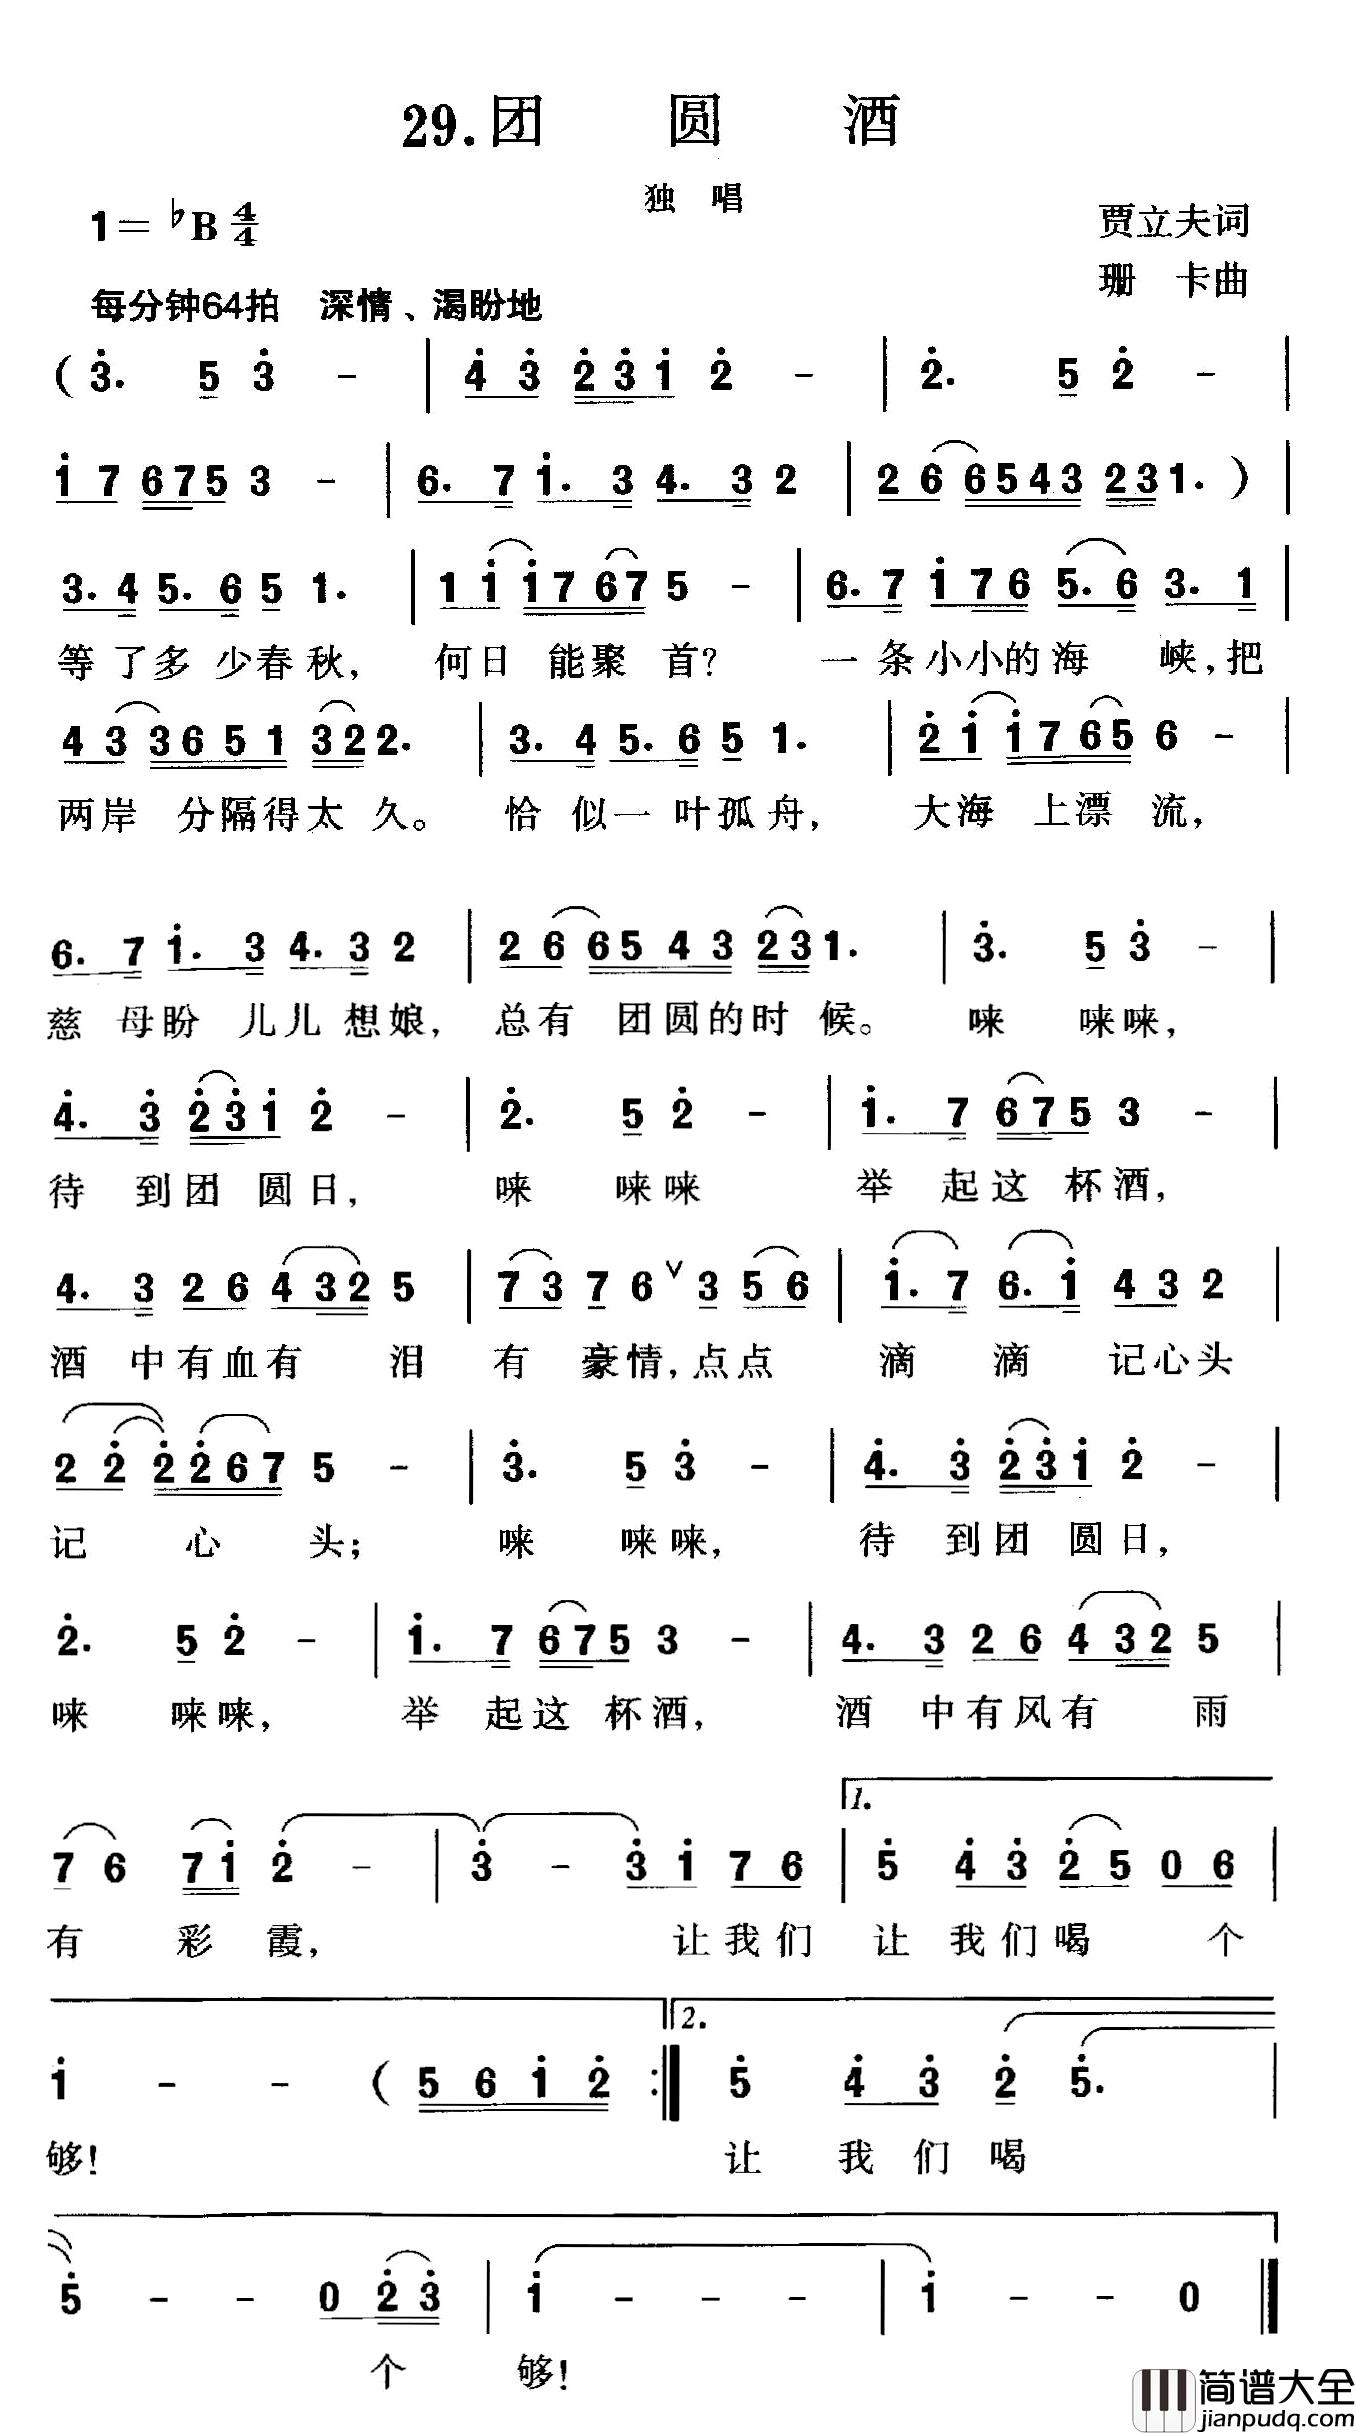 29.团 圆 酒
独 唱
1=♭B 4/4
贾立夫词
珊 卡曲
每分钟64拍 深情、渴盼地
(3. 5 3 - | 4 3 2 3 1 2 - | 2. 5 2 - |
1 7 6 7 5 3 - | 6. 7 1. 3 4. 3 2 | 2 6 6 5 4 3 2 3 1. ) |
3. 4 5. 6 5 1. | 1 1 1 7 6 7 5 - | 6. 7 1 7 6 5. 6 3. 1 |
等了多少春秋, 何日能聚首? 一条小小的海峡,把
4 3 3 6 5 1 3 2 2. | 3. 4 5. 6 5 1. | 2 1 1 7 6 5 6 - |
两岸分隔得太久。 恰似一叶孤舟, 大海上漂流,
6. 7 1. 3 4. 3 2 | 2 6 6 5 4 3 2 3 1. | 3. 5 3 - |
慈母盼儿儿想娘, 总有团圆的时候。 唻 唻唻,
4. 3 2 3 1 2 - | 2. 5 2 - | 1. 7 6 7 5 3 - |
待到团圆日, 唻 唻唻 举起这杯酒,
4. 3 2 6 4 3 2 5 | 7 3 7 6 ∨ 3 5 6 | 1. 7 6. 1 4 3 2 |
酒中有血有泪 有豪情,点点 滴滴记心头
2 2 2 2 6 7 5 - | 3. 5 3 - | 4. 3 2 3 1 2 - |
记心头; 唻 唻唻, 待到团圆日,
2. 5 2 - | 1. 7 6 7 5 3 - | 4. 3 2 6 4 3 2 5 |
唻 唻唻, 举起这杯酒, 酒中有风有雨
1.
7 6 7 1 2 - | 3 - 3 1 7 6 | 5 4 3 2 5 0 6 |
有彩霞, 让我们 让我们喝个
2.
1 - - ( 5 6 1 2 :| 5 4 3 2 5. |
够! 让我们喝
5 - - 0 2 3 | 1 - - - | 1 - - 0 ‖
个 够!
简谱大全
jianpudq.com